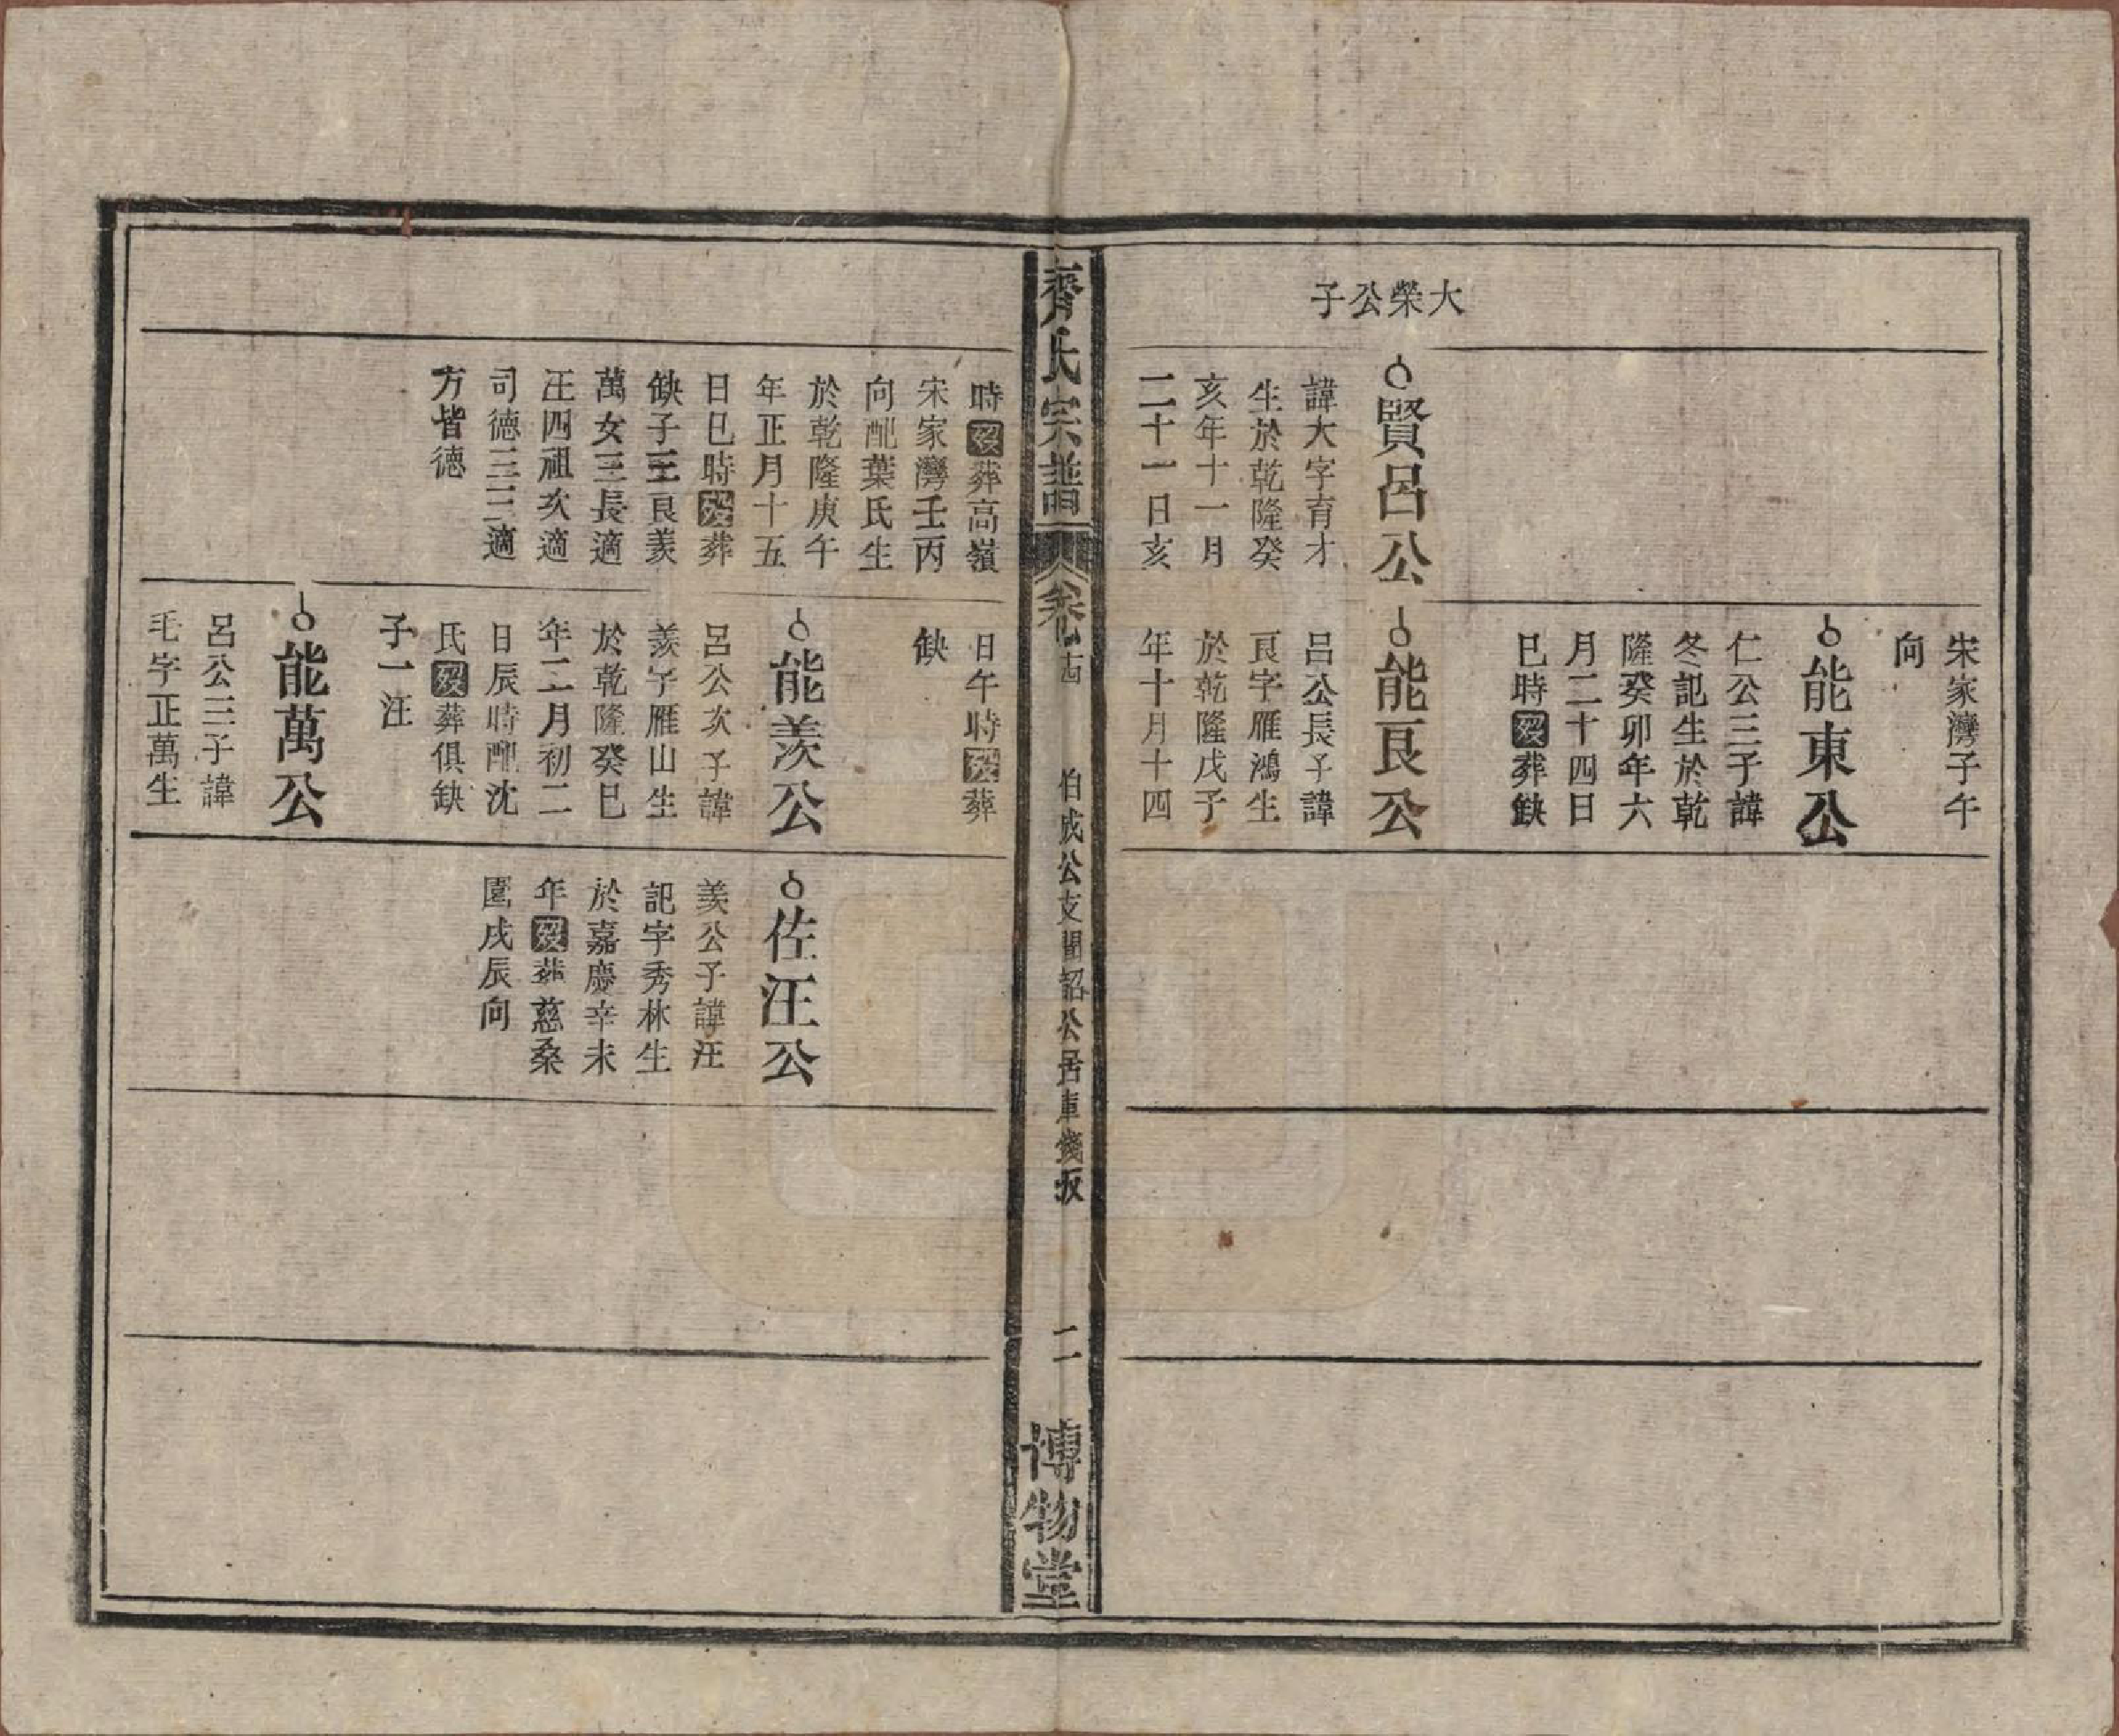 大榮公子
賢呂公
諱大字育才
生於乾隆癸
亥年十一月
二十一日亥
宋家灣子午
向
能東公
仁公三子諱
冬記生於乾
隆癸卯年六
月二十四日
巳時歿葬缺
能艮公
呂公長子諱
艮字雁鴻生
於乾隆戊子
年十月十四
齊氏宗譜
卷
伯成公支聞韶公居庫錢坂
二
博物堂
時歿葬高嶺
宋家灣壬丙
向配葉氏生
於乾隆庚午
年正月十五
日巳時歿葬
缺子三艮羨
萬女三長適
汪四祖次適
司德三三適
方皆德
日午時歿葬
缺
能羨公
呂公次子諱
羨字雁山生
於乾隆癸巳
年二月初二
日辰時配沈
氏歿葬俱缺
子一汪
能萬公
呂公三子諱
毛字正萬生
佐汪公
羨公子諱汪
記字秀林生
於嘉慶辛未
年歿葬慈桑
園戌辰向